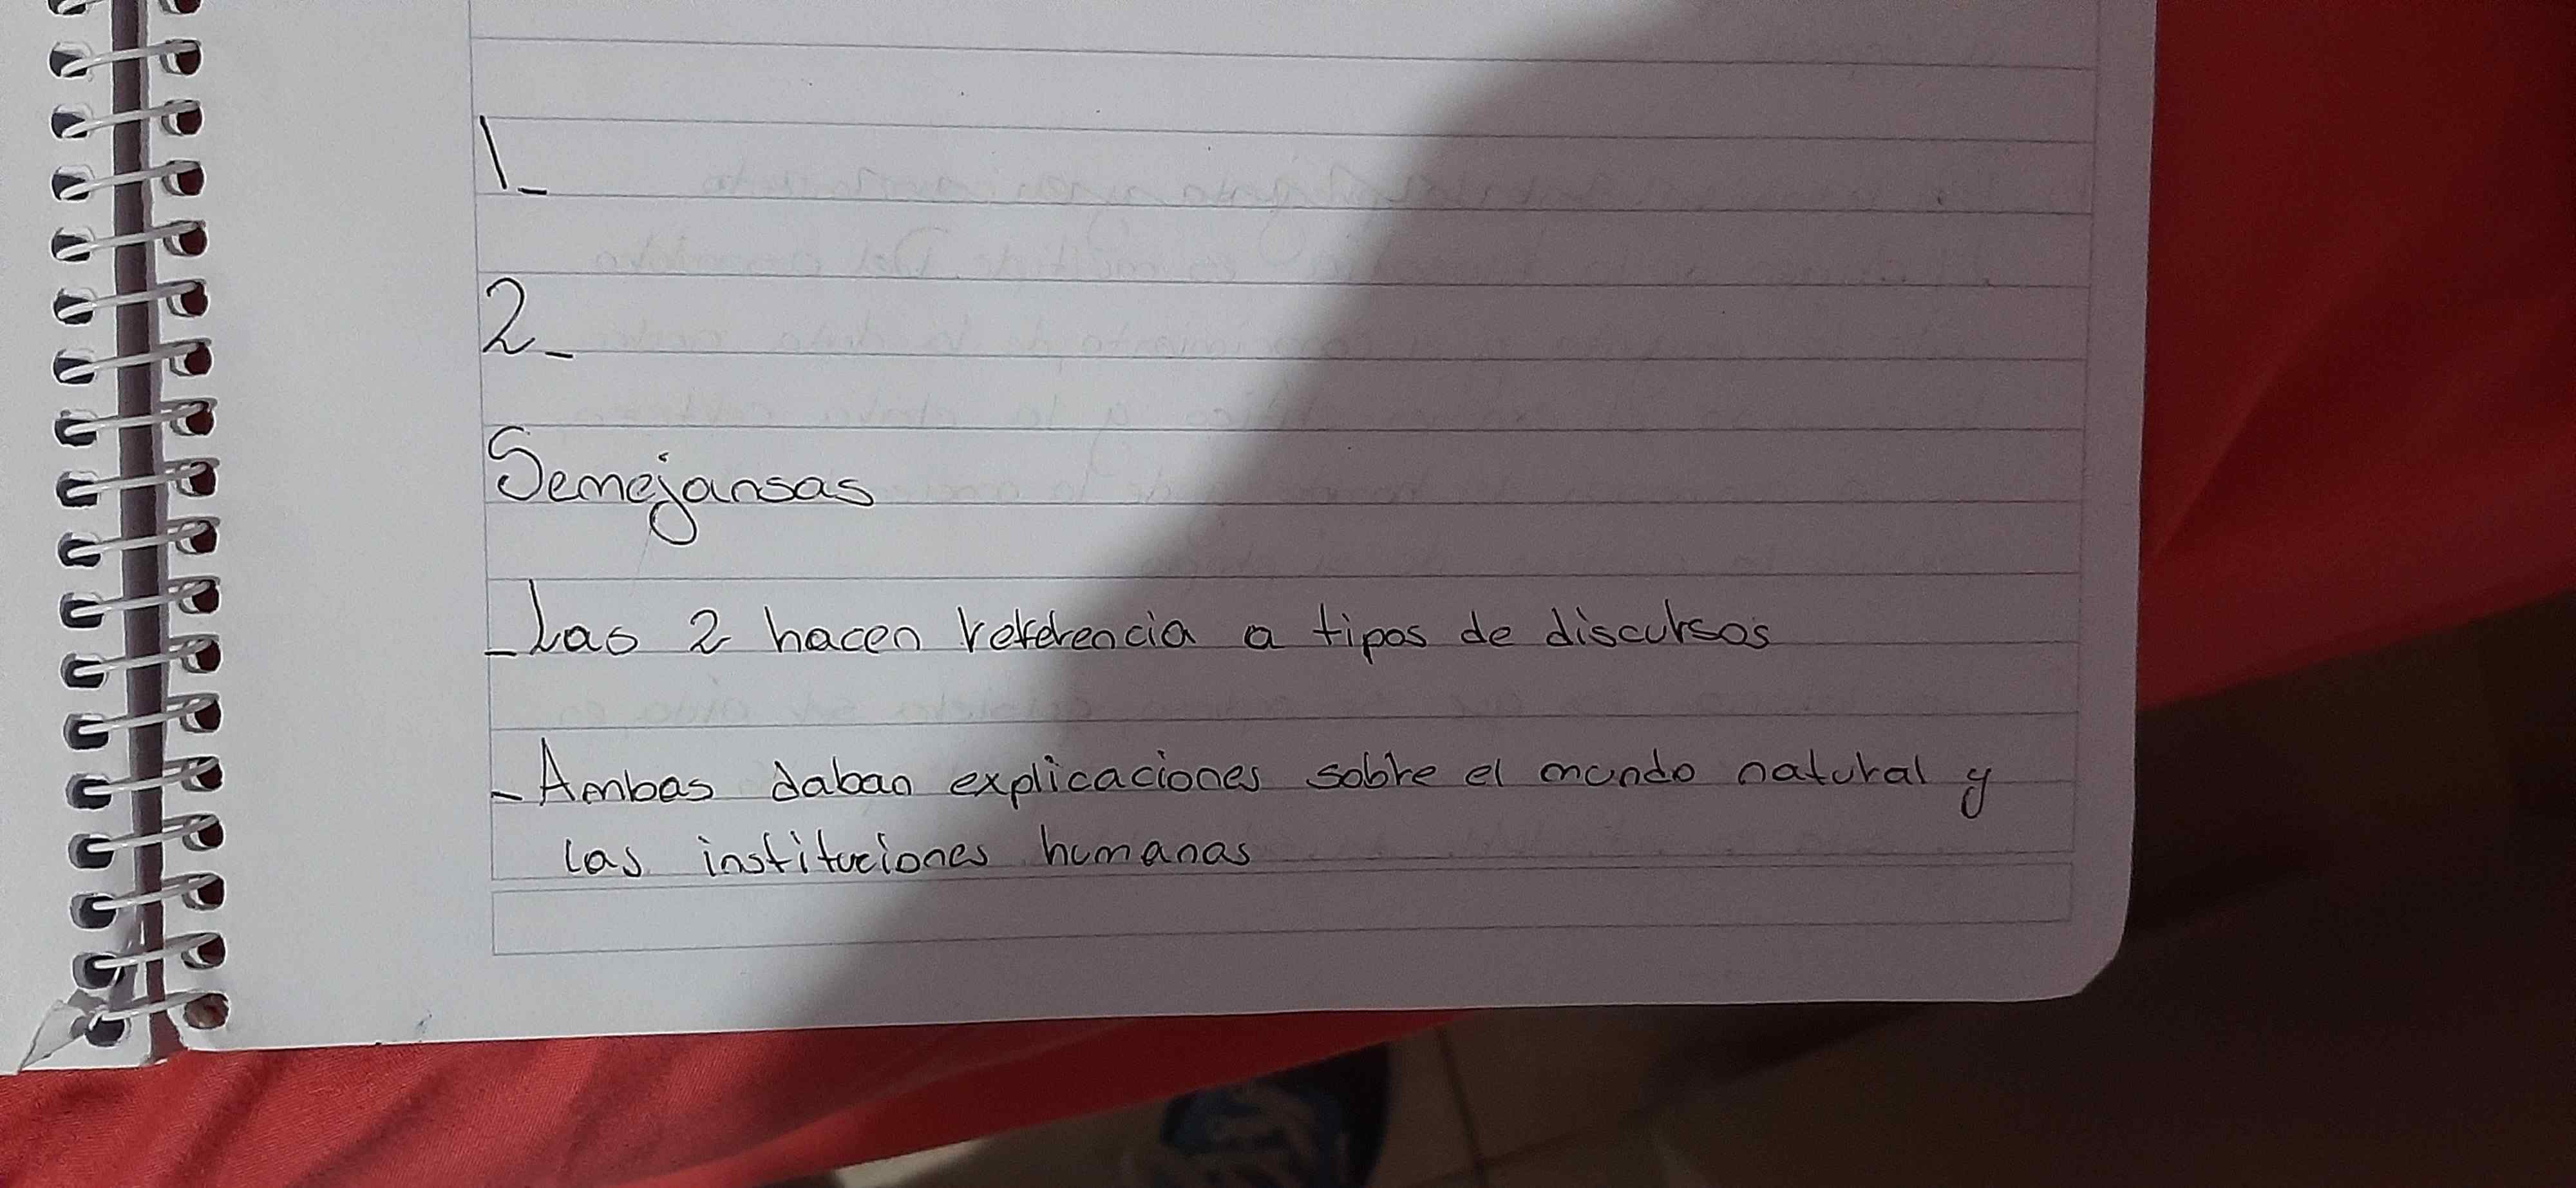 1_
2_
Semejansas
_Las 2 hacen referencia a tipos de discursos
_Ambas daban explicaciones sobre el mundo natural y
las instituciones humanas